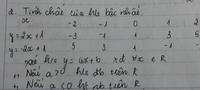 2. Tính chất của h/s bậc nhất.
x -2 -1 0 1 2
y=2x+1 -3 -1 1 3 5
y=-2x+1 5 3 1 -1 -
h/s y=ax+b xđ ∀x ∈ R
Nếu a>0 h/s đb trên R
Nếu a<0 h/s nb trên R.